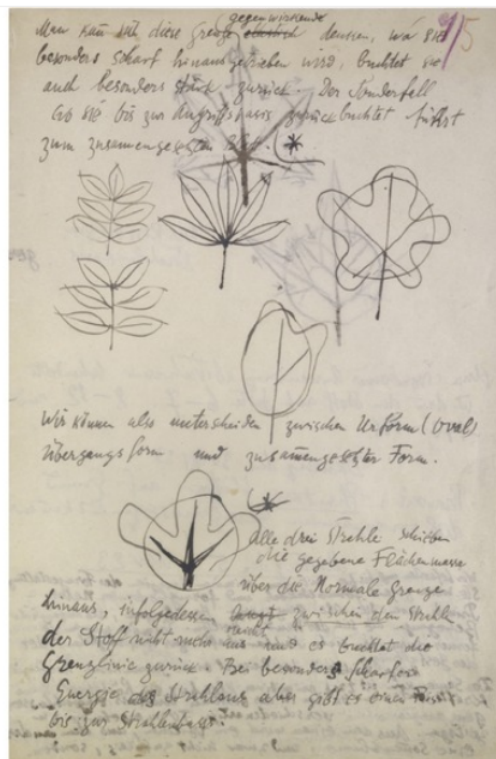 15
gegenwirkende
Man kann sich diese Grenze elastisch denken, wo sie
besonders scharf hinausgetrieben wird, buchtet sie
auch besonders stark zurück. Der Sonderfall
wo sie bis zur Angriffsbasis zurückbuchtet führt
zum zusammengesetzten Blatt.
Wir können also unterscheiden zwischen Urform (Oval)
Übergangsform und zusammengesetzter Form.
Alle drei Strahle schieben
die gegebene Flächenmasse
über die Normale Grenze
hinaus, infolgedessen zwischen den Strahle
reicht
der Stoff nicht mehr aus und es buchtet die
Grenzlinie zurück. Bei besonders scharfer
Energie des Strahlens aber gibt es einen
bis zur Strahlenbasis.